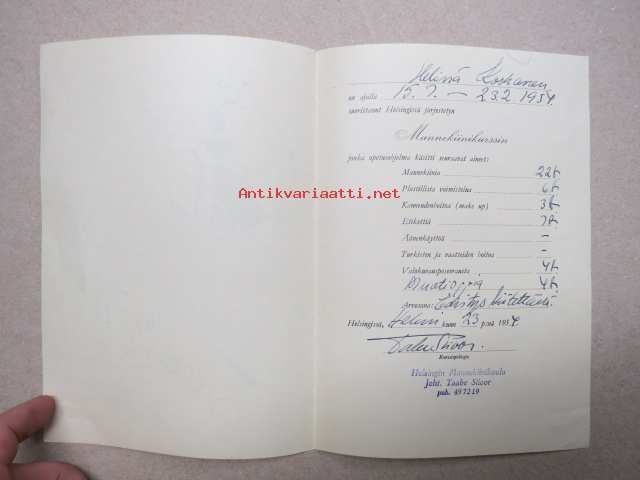 Helinä Koskanen
on ajalla 15.1. — 23.2. 1954
suorittanut Helsingissä järjestetyn
Mannekiinikurssin
jonka opetusohjelma käsitti seuraavat aineet:
Mannekiinia 22 t.
Plastillista voimistelua 6 t.
Kauneudenhoitoa (make up) 3 t.
Etikettiä 7 t.
Äänenkäyttöä —
Turkisten ja vaatteiden hoitoa —
Valokuvausposeerausta 4 t.
Muotioppia 4 t.
Arvosana: Edistys kiitettävä.
Helsingissä, Helmi kuun 23 p:nä 1954
Taabe Slioor.
Kurssinjohtaja
Helsingin Mannekiinikoulu
Joht. Taabe Slioor
puh. 497219
Antikvariaatti.net